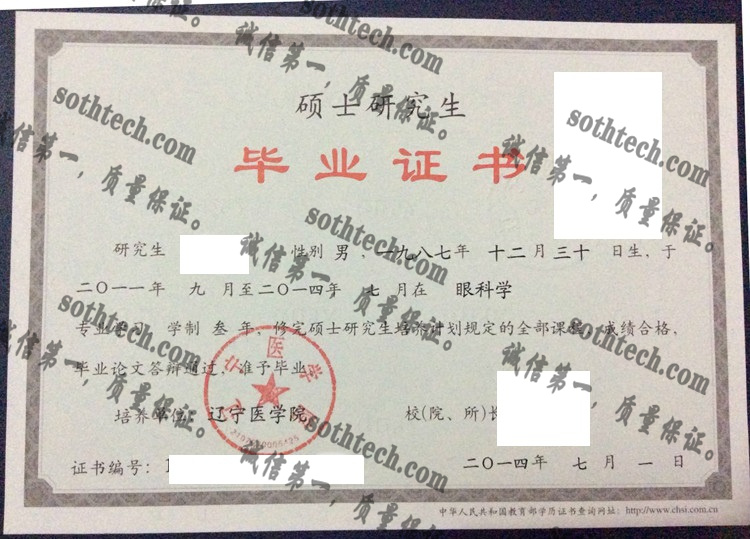 硕士研究生
毕业证书
研究生 性别 男，一九八七年 十二月 三十 日生，于
二〇一一年 九 月至二〇一四年 七 月在 眼科学
专业学习，学制 叁 年，修完硕士研究生培养计划规定的全部课程，成绩合格，
毕业论文答辩通过，准予毕业。
培养单位：辽宁医学院 校(院、所)长
证书编号：1
二〇一四年 七 月 一 日
中华人民共和国教育部学历证书查询网址：http://www.chsi.com.cn
辽宁医学院
sothtech.com
诚信第一，质量保证。
sothtech.com
诚信第一，质量保证。
sothtech.com
诚信第一，质量保证。
sothtech.com
诚信第一，质量保证。
sothtech.com
诚信第一，质量保证。
sothtech.com
诚信第一，质量保证。
sothtech.com
诚信第一，质量保证。
sothtech.com
诚信第一，质量保证。